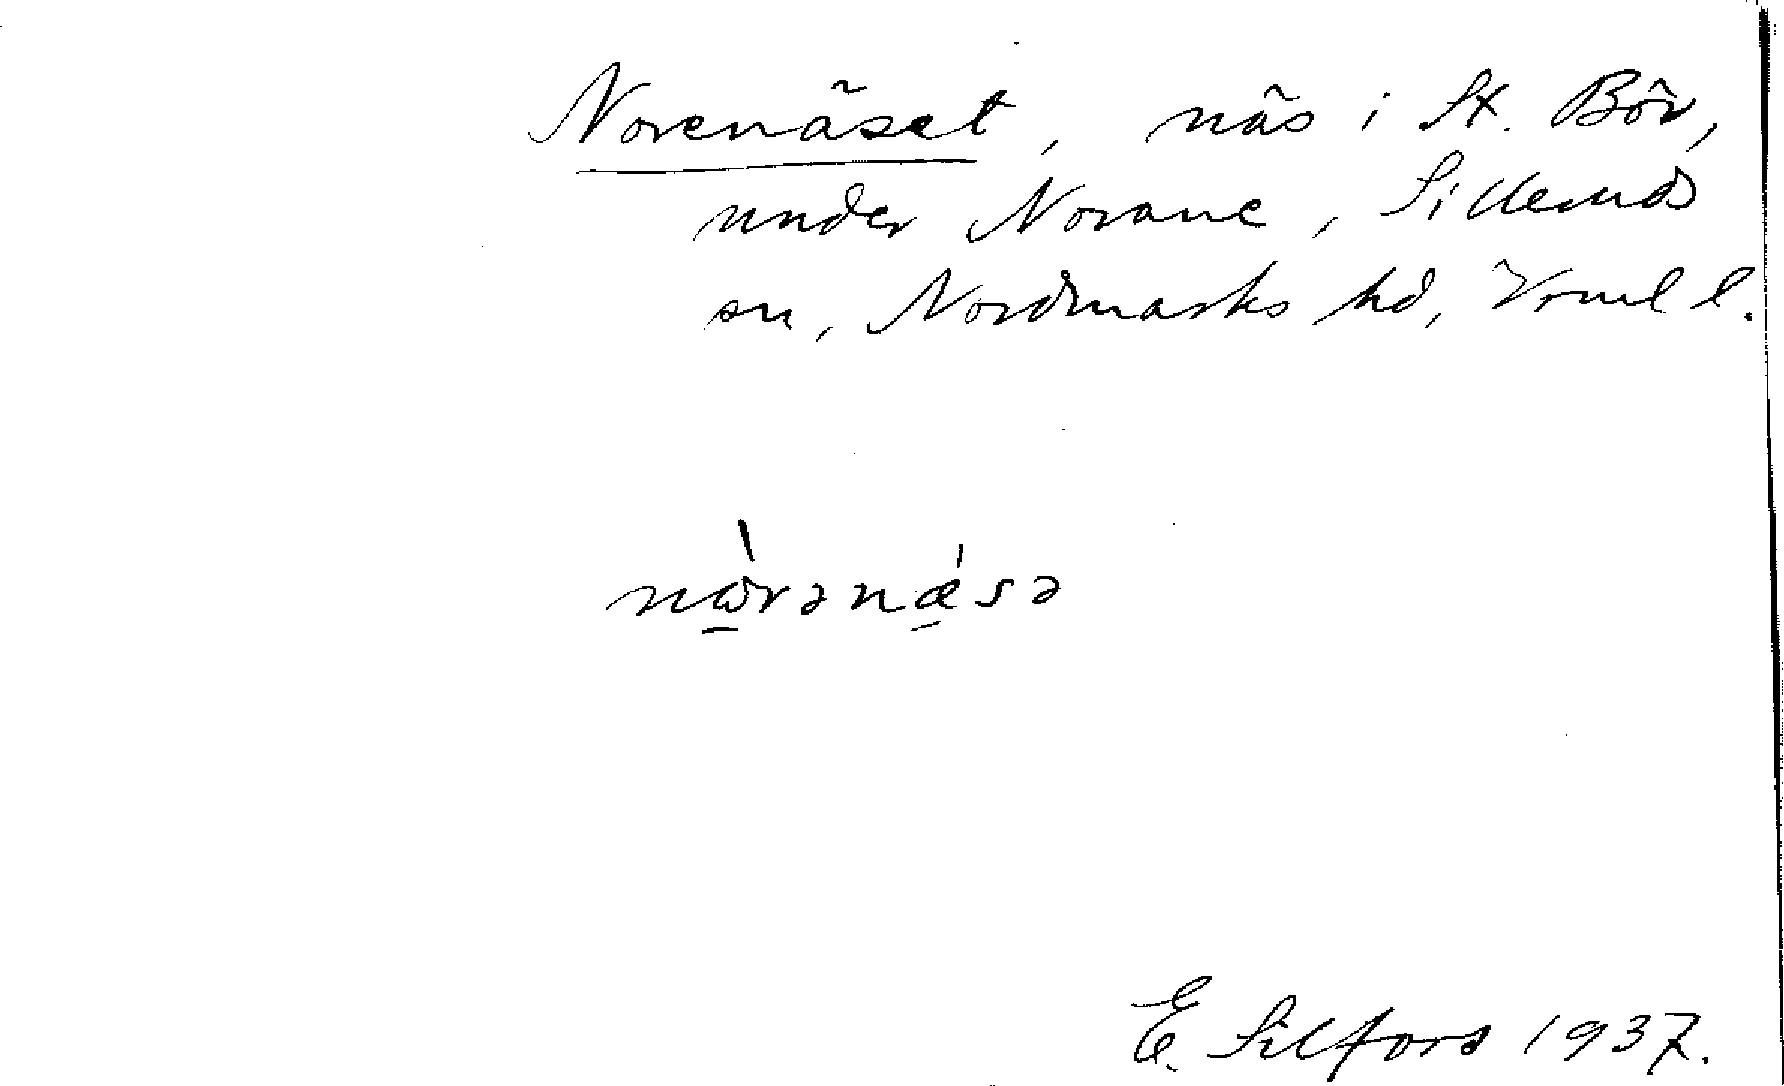 Norenäset, näs i St. Bör,
under Norane, Sillemds
sn, Nordmarks hd, Vrml l.
nὼ̱rənǽ̱sə
E. Silfors 1937.